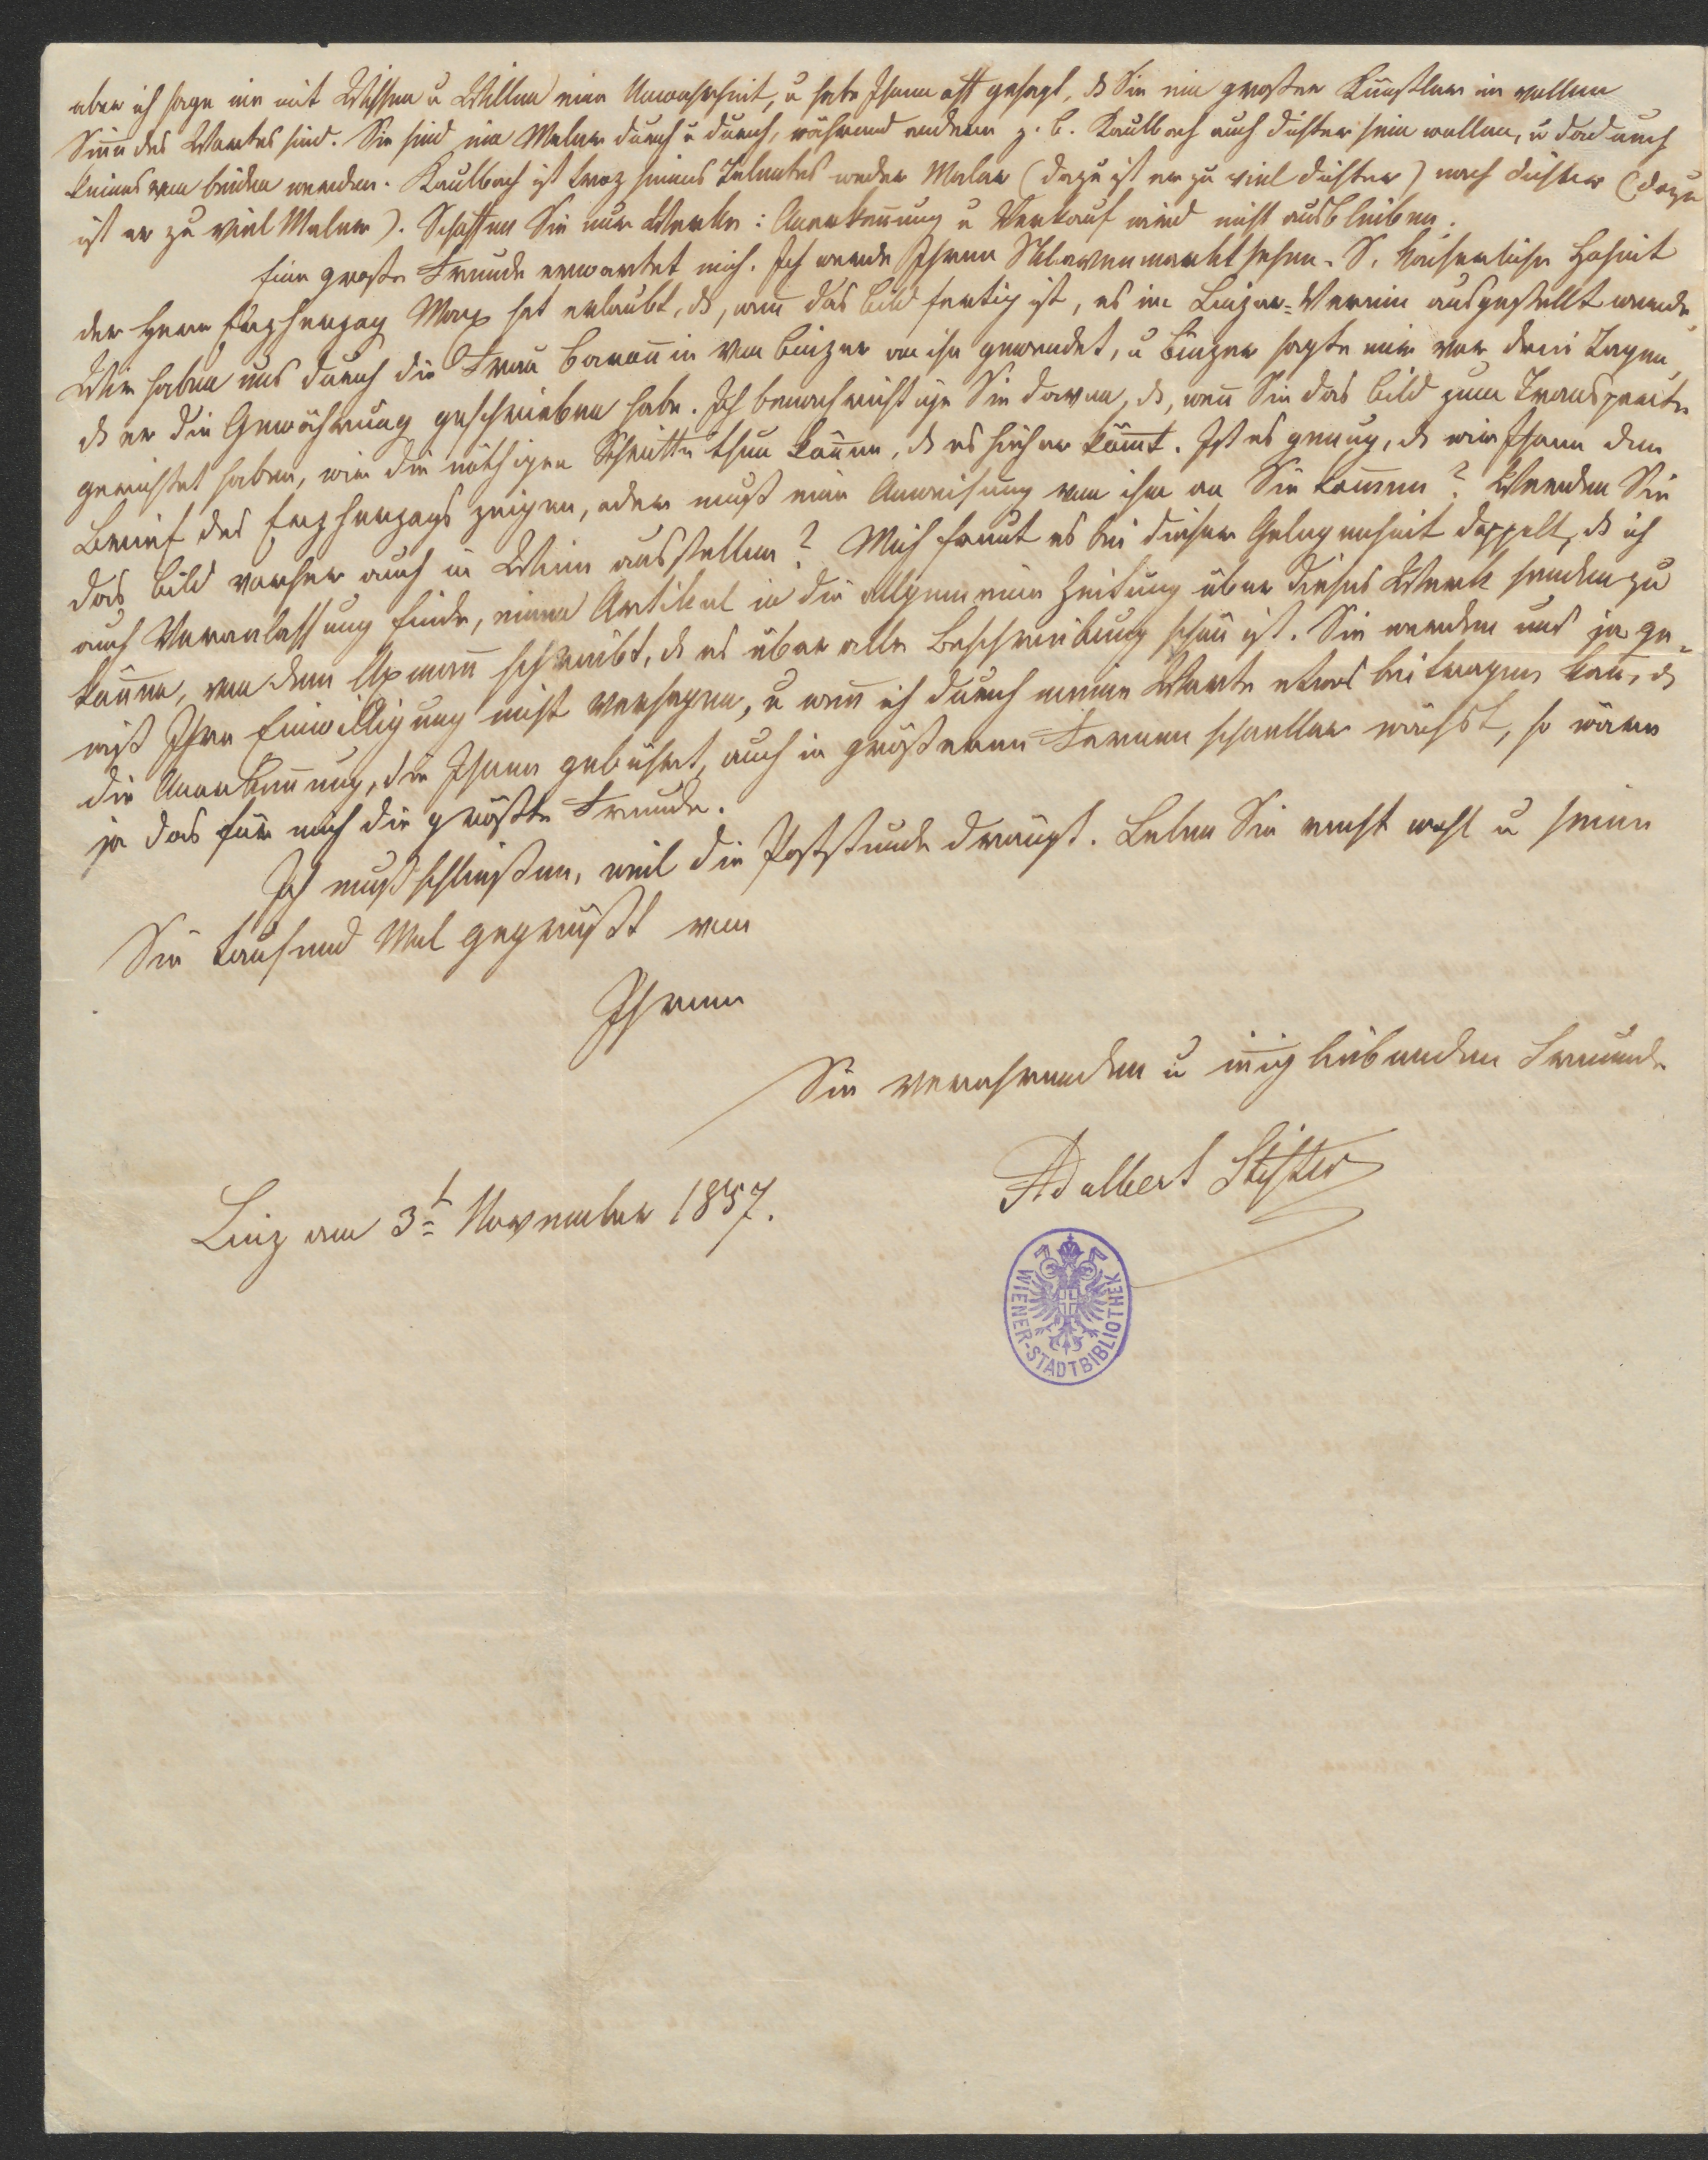 aber ich sage nie mit Wissen u Willen eine Unwahrheit, u habe Ihnen oft gesagt, ds Sie ein großer Künstler im vollen
Siñe des Wortes sind. Sie sind ein Maler durch u durch, während andere z. B. Kaulbach auch Dichter sein wollen, u dadurch
keines von beiden werden. Kaulbach ist troz seines Talentes weder Maler (dazu ist er zu viel Dichter) noch Dichter (dazu
ist er zu viel Maler). Schaffen Sie nur Werke: Anerkeñung u Verkauf wird nicht ausbleiben.
Eine große Freude erwartet mich. Ich werde Ihren Sklavenmarkt sehen. S. kaiserliche Hoheit
der Herr Erzherzog Max hat erlaubt, ds, weñ das Bild fertig ist, es im Linzer-Verein ausgestellt werde.
Wir haben uns durch die Frau Baroñin von Binzer an ihn gewendet, u Binzer sagte mir vor drei Tagen,
ds er die Gewährung geschrieben habe. Ich benachrichtige Sie davon, ds, weñ Sie das Bild zum Transporte
gerichtet haben, wir die nöthigen Schritte thun köñen, ds es hieher köm̃t. Ist es genug, ds wir Ihnen den
Brief des Erzherzogs zeigen, oder muß eine Anweisung von ihm an Sie kom̃en? Werden Sie
das Bild vorher auch in Wien ausstellen? Mich freut es bei dieser Gelegenheit doppelt, ds ich
auch Veranlassung finde, einen Artikel in die allgemeine Zeitung über dieses Werk senden zu
köñen, von dem Axmañ schreibt, ds es über alle Beschreibung schön ist. Sie werden uns ja ge-
wiß Ihre Einwilligung nicht versagen, u weñ ich durch meine Worte etwas beitragen kañ, ds
die Anerkeñung, die Ihnen gebührt, auch in größeren Fernen schneller wächst, so wäre
ja das für mich die größte Freude.
Ich muß schließen, weil die Poststunde drängt. Leben Sie recht wohl u seien
Sie tausend Mal gegrüßt von
Ihrem
Sie verehrenden u iñig liebenden Freunde
Adalbert Stifter
Linz am 3t November 1857.
WIENER-STADTBIBLIOTHEK